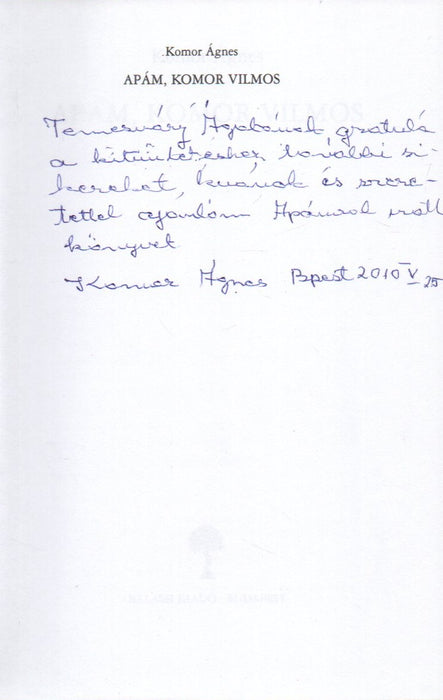 Komor Ágnes
APÁM, KOMOR VILMOS
Temesváry Ágotának gratulá
a kitüntetéshez, további si-
kereket, kívánok és szere-
tettel ajánlom Apámról írott
könyvet
Komor Ágnes Bpest 2010 V 25